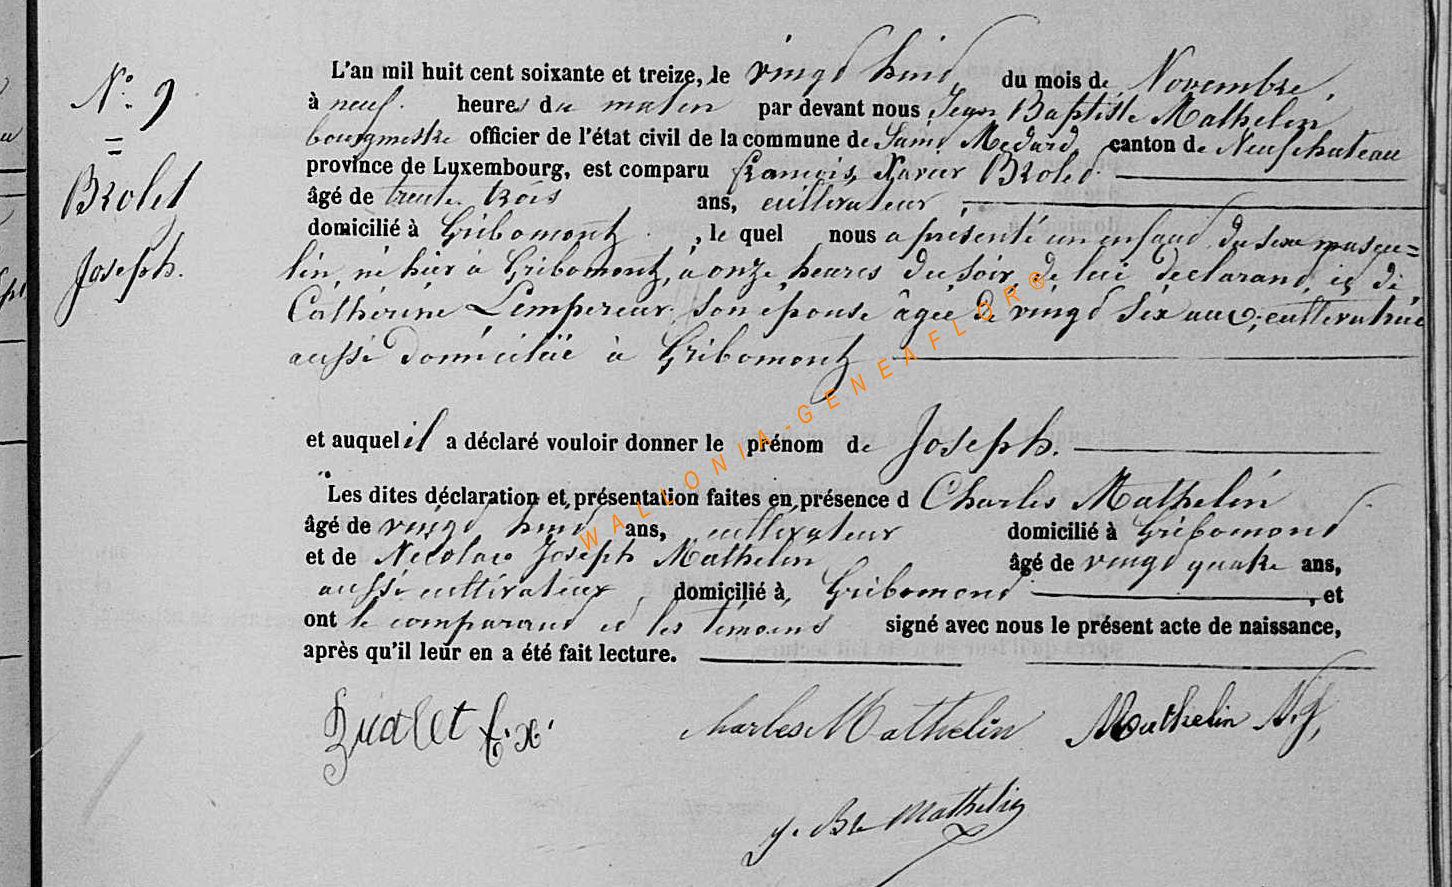 N.° 9
Brolet
Joseph.
L'an mil huit cent soixante et treize, le vingt huit du mois de Novembre,
à neuf heures du matin par devant nous Jean Baptiste Mathelin
bourgmestre officier de l'état civil de la commune de Saint Médard, canton de Neufchateau
province de Luxembourg, est comparu François Xavier Brolet
âgé de trente trois ans, cultivateur
domicilié à Gribomont, le quel nous a présenté un enfant du sexe mascu=
lin, né hier à Gribomont, à onze heures du soir, de lui déclarant, et de
Cathérine Lempereur, son épouse âgée de vingt six ans, cultivatrice
aussi domiciliée à Gribomont
et auquel il a déclaré vouloir donner le prénom de Joseph.
Les dites déclaration et présentation faites en présence d Charles Mathelin
âgé de vingt huit ans, cultivateur domicilié à Gribomont
et de Nicolas Joseph Mathelin âgé de vingt quatre ans,
aussi cultivateur, domicilié à Gribomont, et
ont le comparant et les témoins signé avec nous le présent acte de naissance,
après qu'il leur en a été fait lecture.
f. x.
Charles Mathelin
Mathelin N. J,
J. Bte Mathelin
WALLONIA-GENEAFLOR®